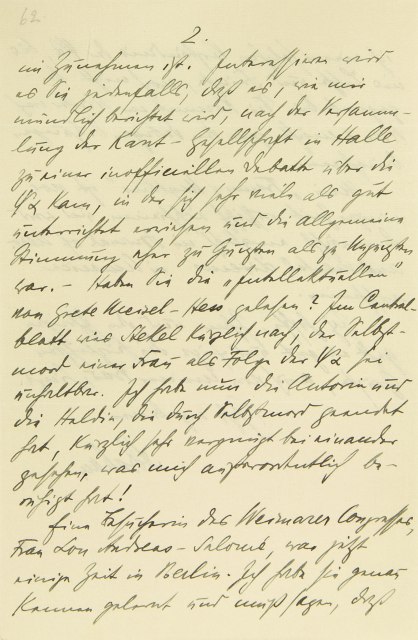 62
2.
im Zunehmen ist. Interessieren wird
es Sie jedenfalls, daß es, wie mir
mündlich berichtet wird, nach der Versamm-
lung der Kant-Gesellschaft in Halle
zu einer inofficiellen Debatte über die
ΨA kam, in der sich sehr viele als gut
unterrichtet erwiesen und die allgemeine
Stimmung eher zu Gunsten als zu Ungunsten
war. – Haben Sie die „Intellektuellen"
von Grete Meisel-Hess gelesen? Im Central-
blatt wies Stekel kürzlich nach, der Selbst-
mord einer Frau als Folge der ΨA sei
unhaltbar. Ich habe nun die Autorin und
die Heldin, die durch Selbstmord geendet
hat, kürzlich sehr vergnügt bei einander
gesehen, was mich außerordentlich be-
ruhigt hat!
Eine Besucherin des Weimarer Congresses,
Frau Lou Andreas-Salomé, war jetzt
einige Zeit in Berlin. Ich habe sie genau
kennen gelernt und muß sagen, daß